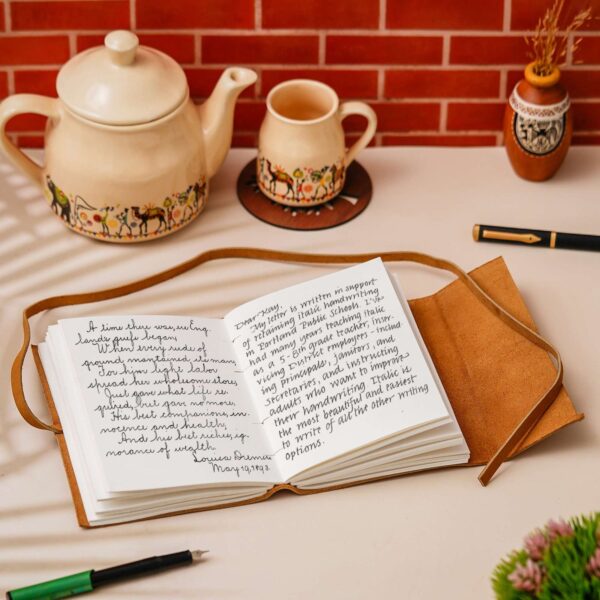 A time there was, ere Eng-
lands griefs began,
When every rude of
ground maintained its man;
For him light labor
spread her wholesome store,
Just gave what life re-
quired, but gave no more,
His best companions, in-
nocence and health,
And his best riches, ig-
norance of wealth.
Louisa
May 19, 1893.
Dear Kay,
My letter is written in support
of retaining italic handwriting
in Portland Public Schools. I've
had many years teaching italic
as a 5-8th grade teacher, inser-
vicing District employees - includ-
ing principals, janitors, and
secretaries, and instructing
adults who want to improve
their handwriting. Italic is
the most beautiful and easiest
to write of all the other writing
options.